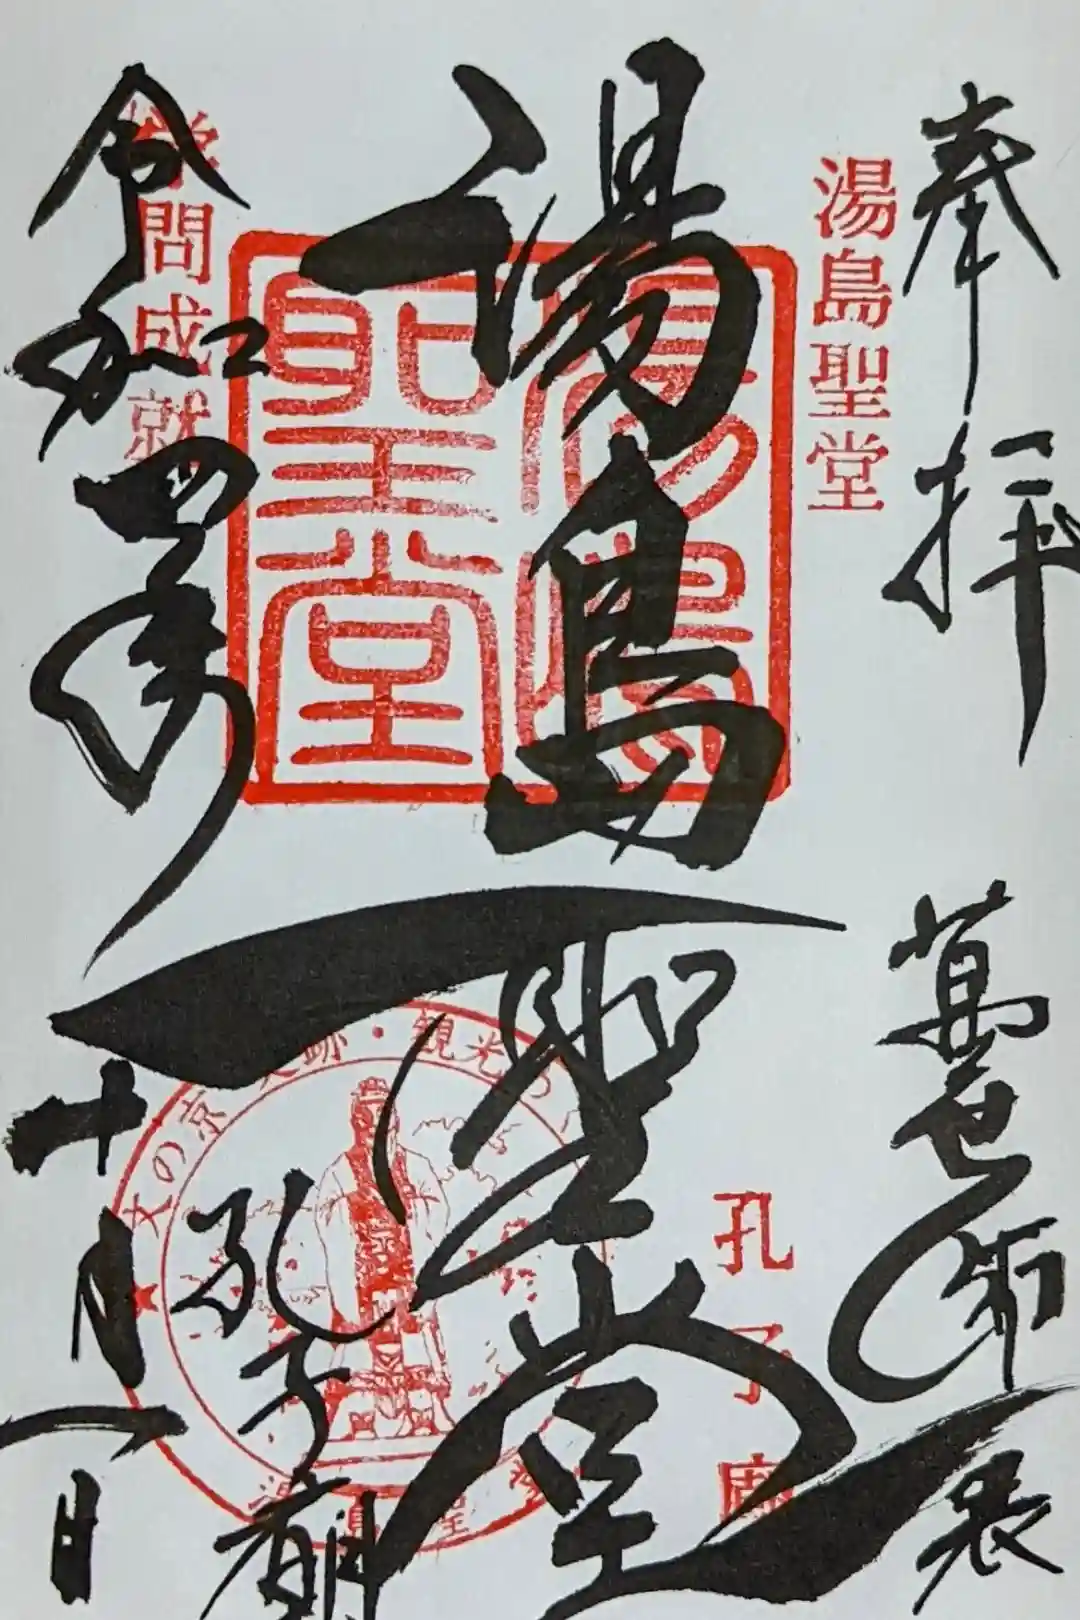 奉拝
萬世師表
湯島聖堂
孔子廟
湯島聖堂
湯島聖堂
孔子廟
令和四年
十月一日
学問成就
文の京 史跡・観光の
湯島聖